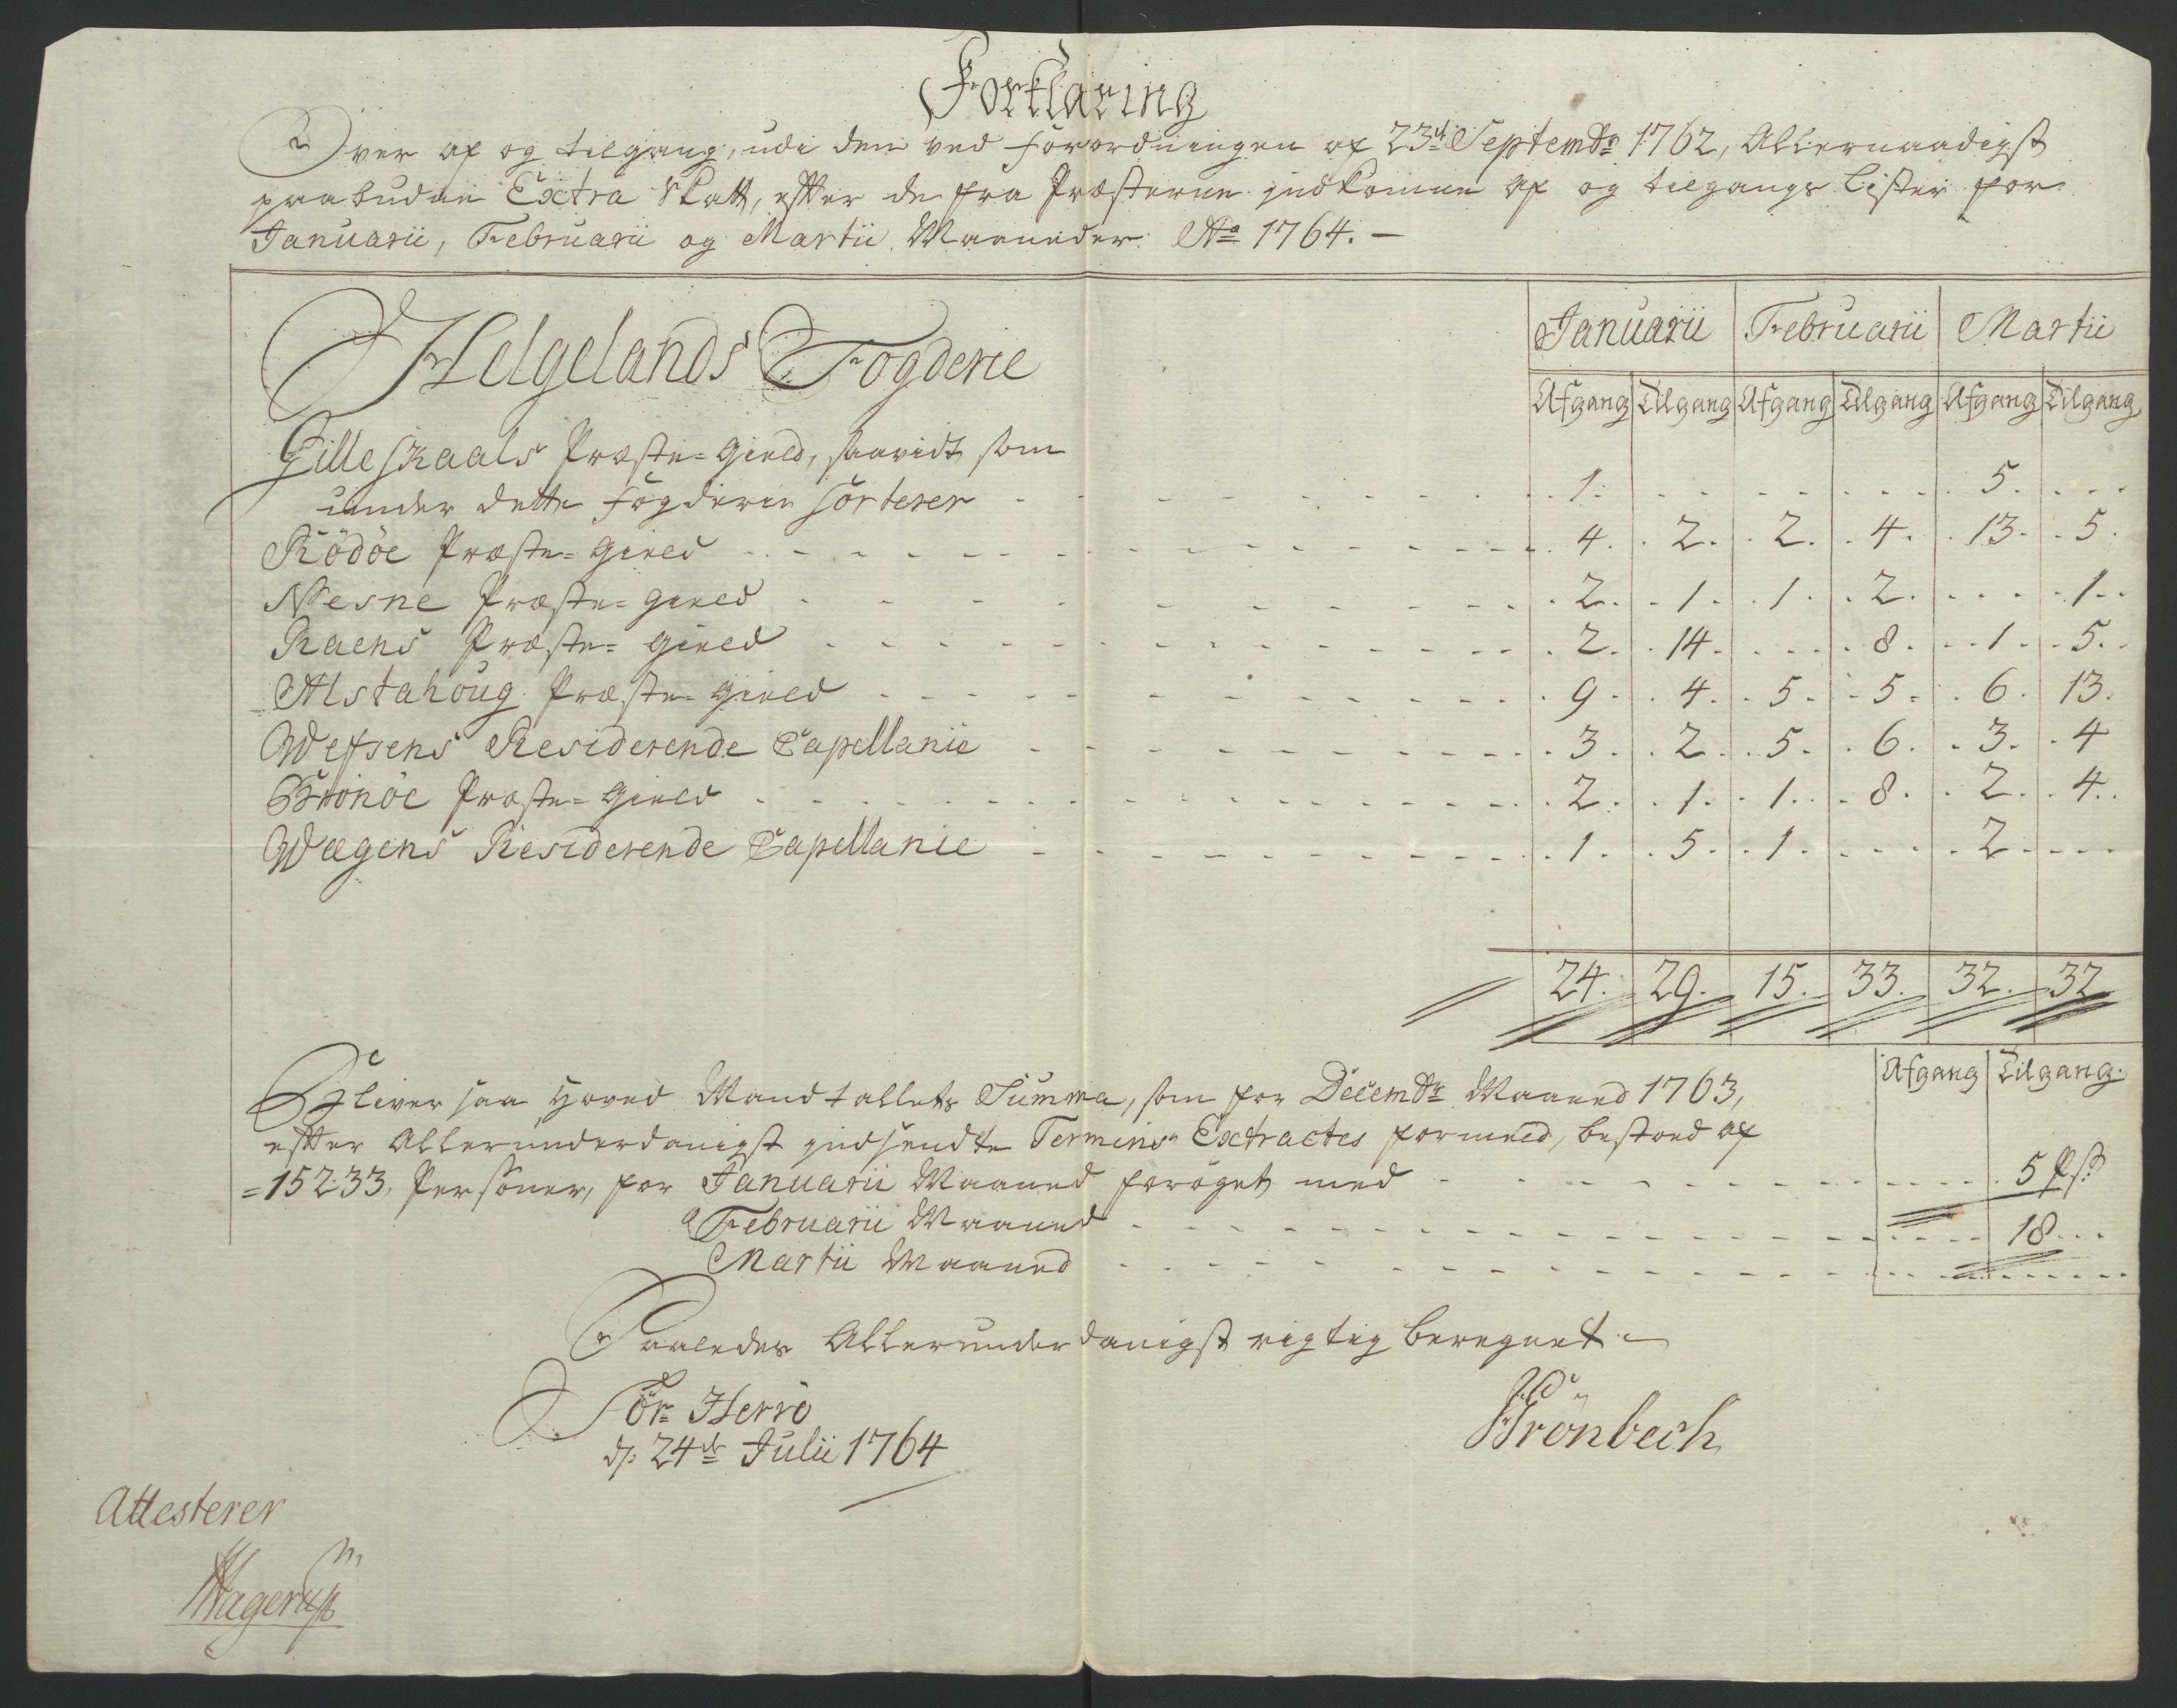 Forklaring
Over af og tilgang, udi den ved Forordningen af 23de Septembr 1762, Allernaadigst
paabudne Extra Skatt, efter de fra Præsterne indkomne af og tilgangs Lister for
Januarii, Februarii og Martii Maaneder Ao 1764. —
Helgelands Fogderie
Januarii Februarii Martii
Afgang Tilgang Afgang Tilgang Afgang Tilgang
Gilleskaals Præste-Gield, saavidt som
under dette Fogderie sorterer 1. 5.
Rödöe Præste-Gield 4. 2. 2. 4. 13. 5.
Nesne Præste-Gield 2. 1. 1. 2. 1.
Raens Præste-Gield 2. 14. 8. 1. 5.
Alstahoug Præste-Gield 9. 4. 5. 5. 6. 13.
Wefsens Residerende Capellanie 3. 2. 5. 6. 3. 4
Brönöe Præste-Gield 2. 1. 1. 8. 2. 4.
Wægens Residerende Capellanie 1. 5. 1. 2.
24. 29. 15. 33. 32. 32
Afgang Tilgang
Bliver saa Hoved Mandtallets Summa, som for Decembr Maaned 1763,
efter Allerunderdanigst indsendte Termins Extractes formeld, bestoed af
=15233, Personer, for Januarii Maaned forøget med 5 Ps:
Februarii Maaned 18
Martii Maaned
Saaledes Allerunderdanigst rigtig beregnet
Sör Herrö
d: 24de Julii 1764
Brönbech
Attesterer
Hagerup